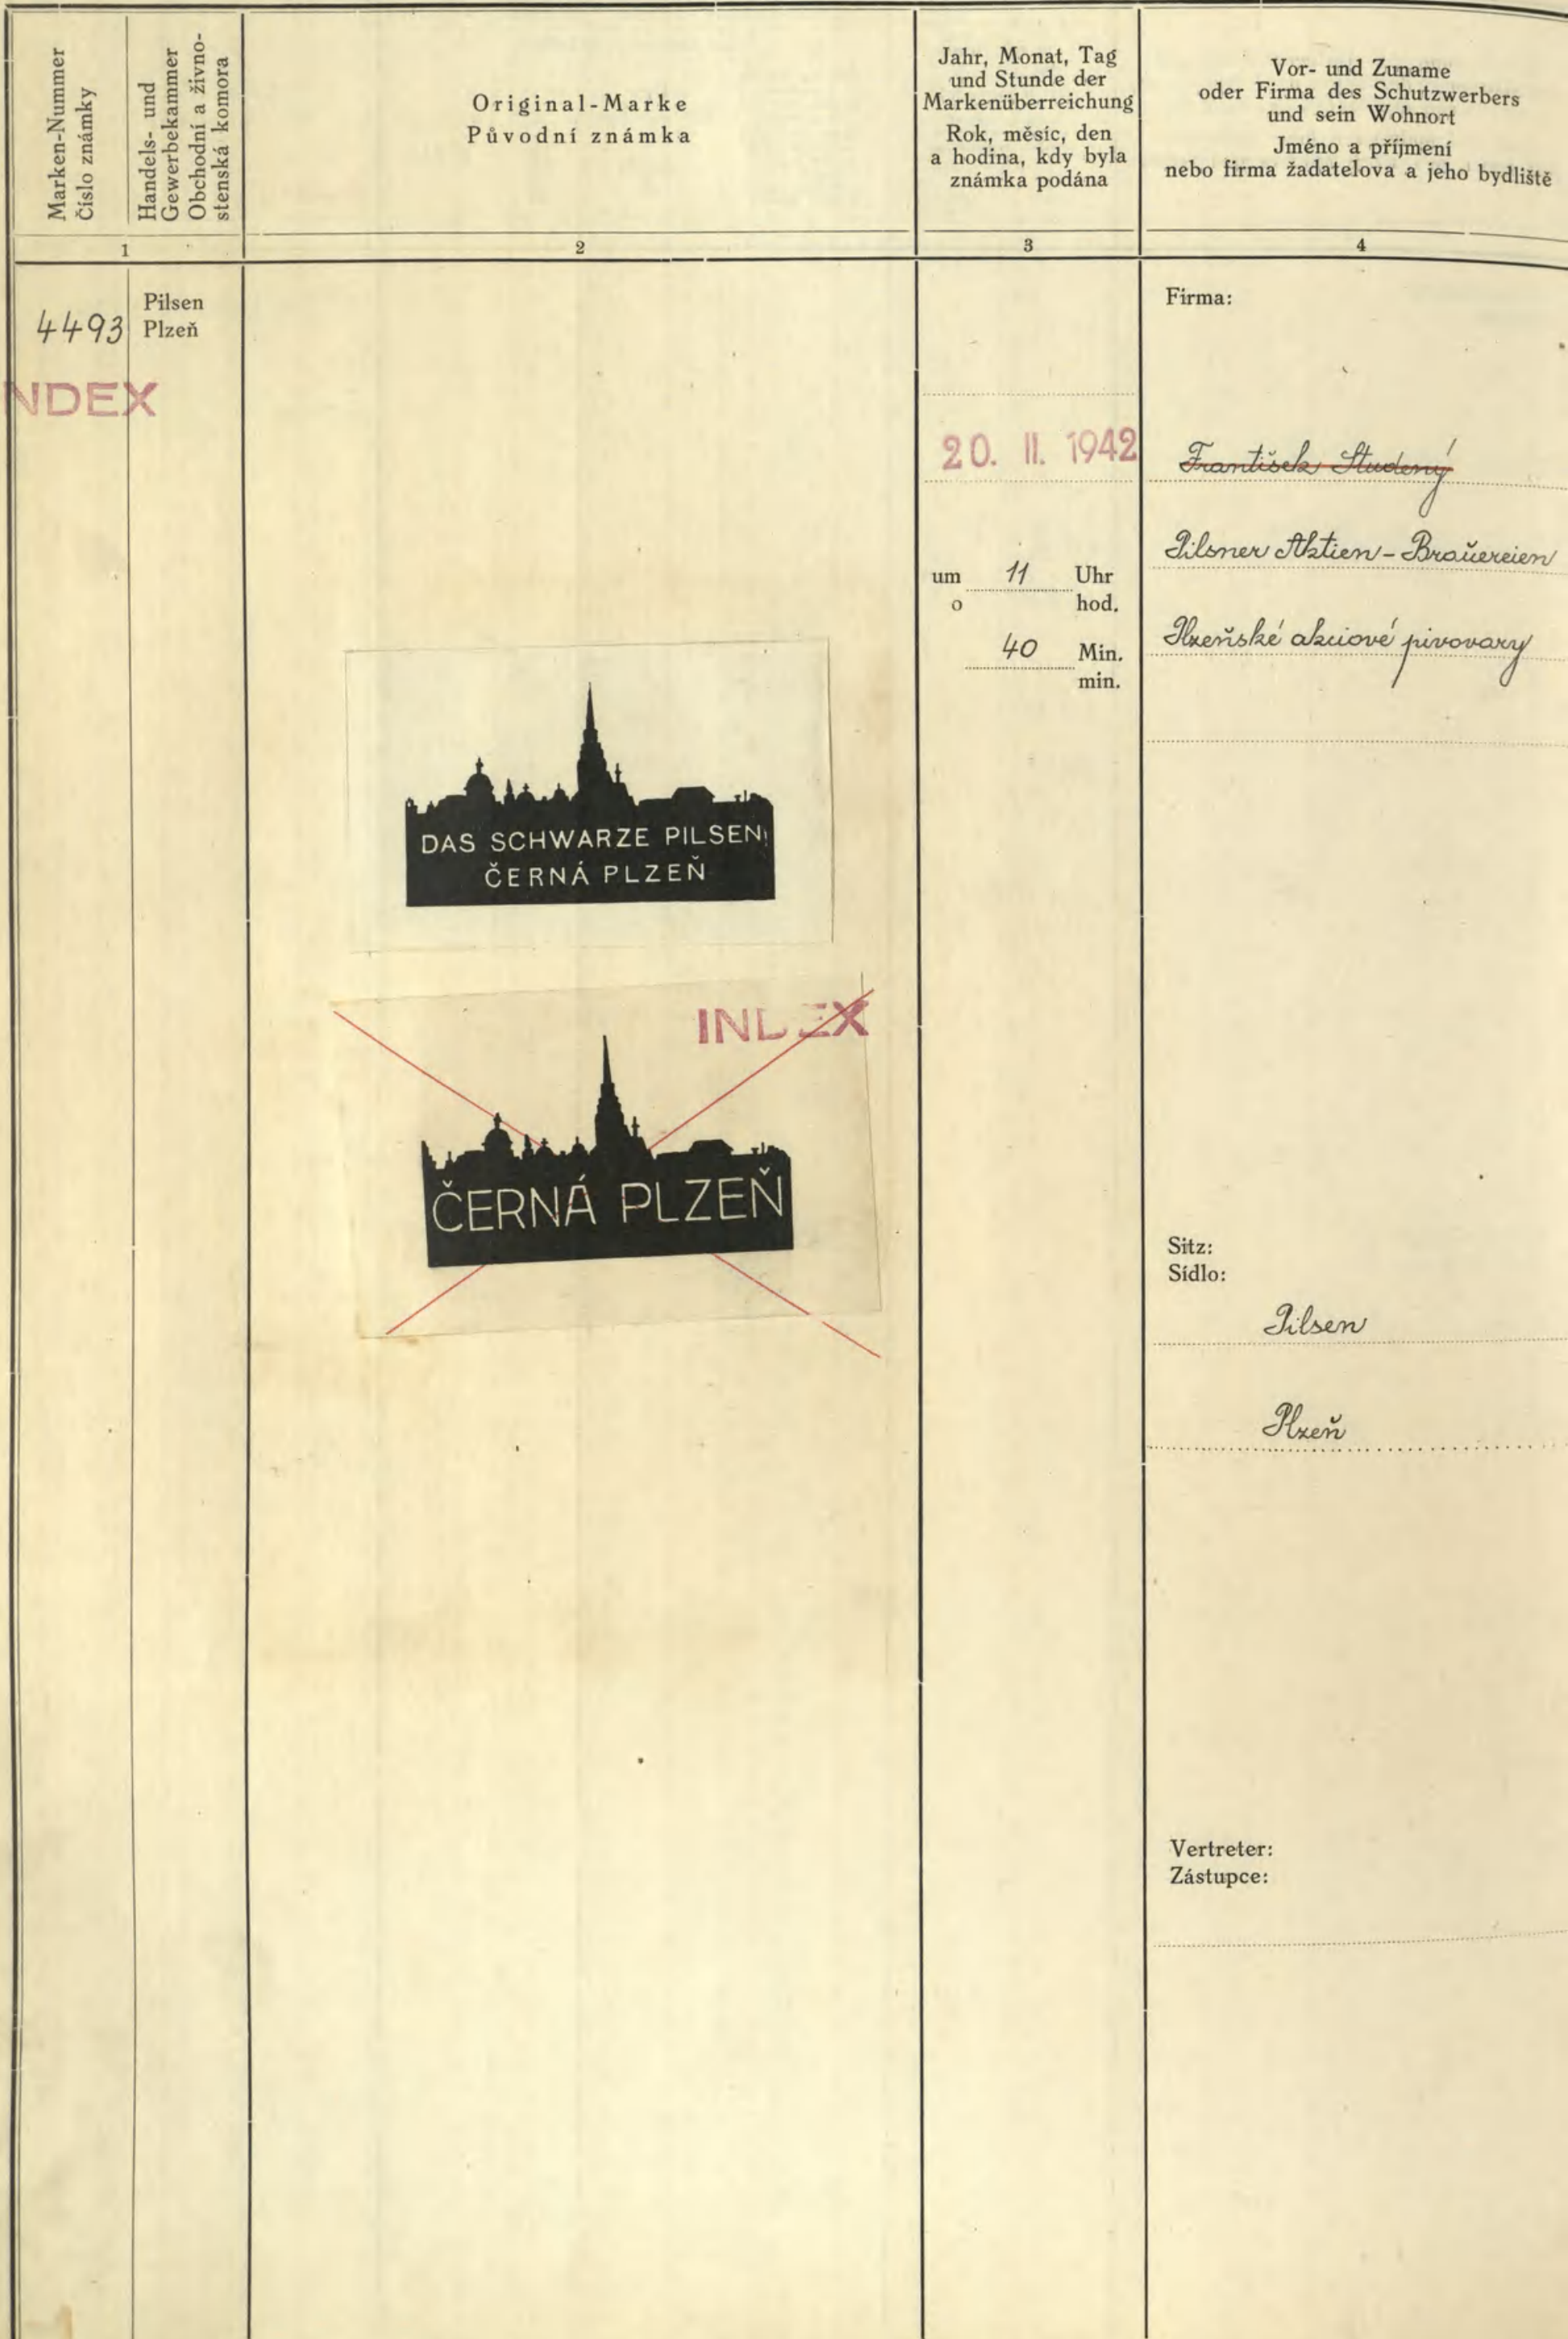 Marken-Nummer
Číslo známky
Handels- und
Gewerbekammer
Obchodní a živno-
stenská komora
Original-Marke
Původní známka
Jahr, Monat, Tag
und Stunde der
Markenüberreichung
Rok, měsíc, den
a hodina, kdy byla
známka podána
Vor- und Zuname
oder Firma des Schutzwerbers
und sein Wohnort
Jméno a příjmení
nebo firma žadatelova a jeho bydliště
1
2
3
4
4493
Pilsen
Plzeň
NDEX
DAS SCHWARZE PILSEN
ČERNÁ PLZEŇ
INDEX
ČERNÁ PLZEŇ
20. II. 1942
um 11 Uhr
o hod.
40 Min.
min.
Firma:
František Studený
Pilsner Aktien-Brauereien
Plzeňské akciové pivovary
Sitz:
Sídlo:
Pilsen
Plzeň
Vertreter:
Zástupce: